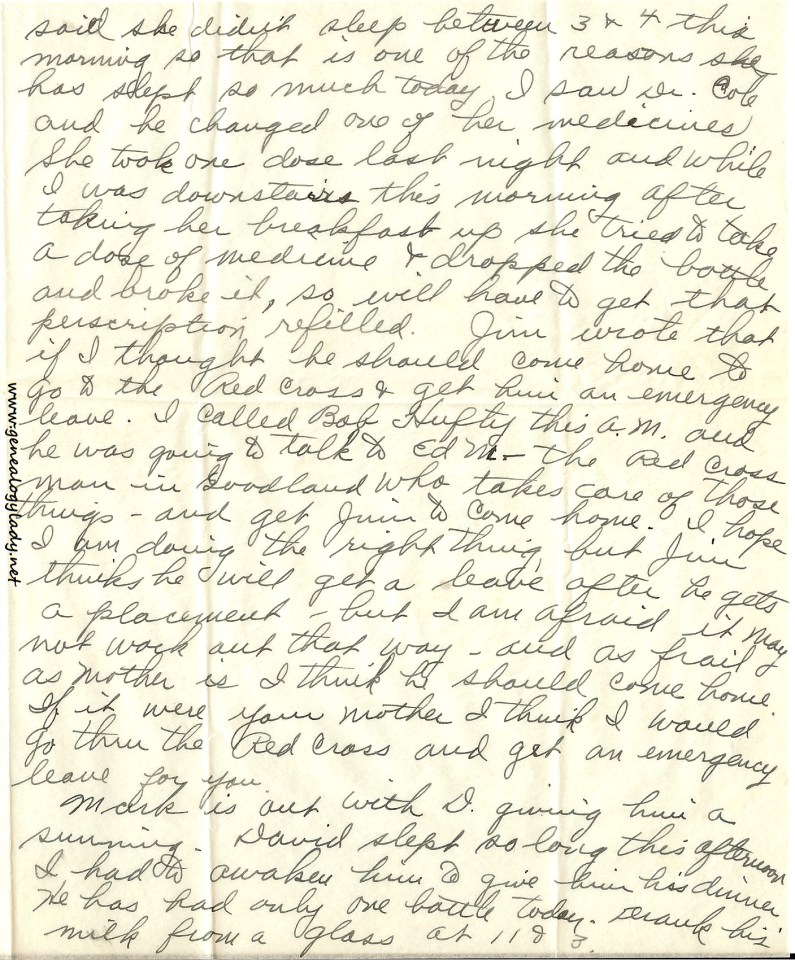 said she didn't sleep between 3 & 4 this
morning so that is one of the reasons she
has slept so much today. I saw Dr. Cole
and he changed one of her medicines
She took one dose last night and while
I was downstairs this morning after
taking her breakfast up she tried to take
a dose of medicine & dropped the bottle
and broke it, so will have to get that
perscription refilled. Jim wrote that
if I thought he should come home to
go to the Red Cross & get him an emergency
leave. I called Bob Hufty this a.m. and
he was going to talk to Ed M. - the Red Cross
man in Goodland who takes care of those
things - and get Jim to come home. I hope
I am doing the right thing, but Jim
thinks he will get a leave after he gets
a placement - but I am afraid it may
not work out that way - and as frail
as Mother is I think he should come home.
If it were your mother I think I would
go thru the Red Cross and get an emergency
leave for you.
Mark is out with D. giving him a
sunning. David slept so long this afternoon
I had to awaken him to give him his dinner
He has had only one bottle today. Drank his
milk from a glass at 11 & 3.
www.genealogylady.net